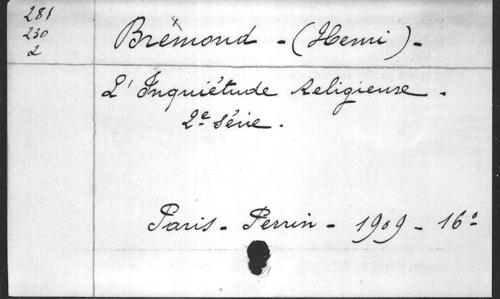 281
230
2
Brémond - (Henri) -
L'Inquiétude Religieuse.
2e Série.
Paris - Perrin - 1909 - 16°